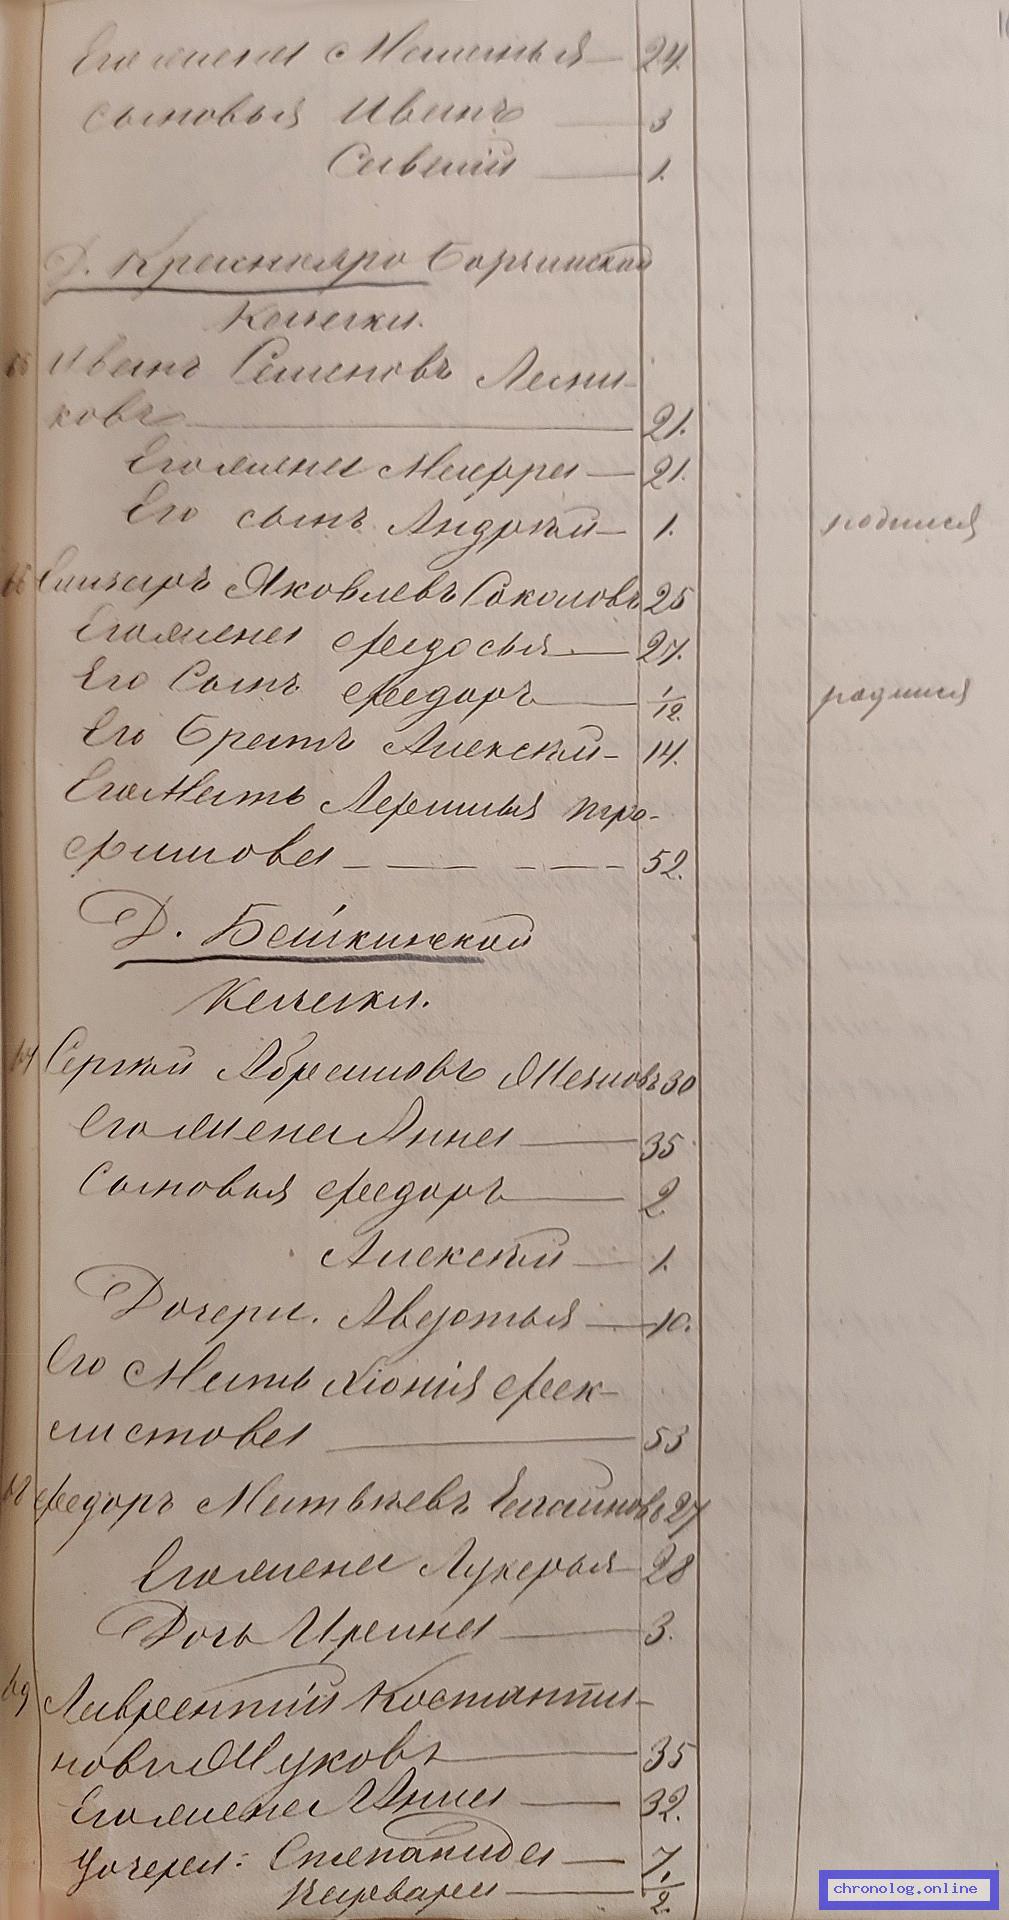 Его жена Меланья — 24.
сыновья Иванъ — 3
Савелій — 1.
Д. Краснояро Борчинской
Казаки.
65 Иванъ Семеновъ Лесни-
ковъ — 21.
Его жена Марфа — 21.
Его сынъ Андрѣй — 1. родился
66 Елизаръ Яковлевъ Соколовъ 25
Его жена Федосья — 27.
Его Сынъ Федоръ — 1/12. родился
Его Братъ Алексѣй — 14.
Его Мать
фимова — 52.
Д.
Казаки.
Сергѣй Абрамовъ 30
Его жена Анна — 35
Сыновья Федоръ — 2
Алексѣй — 1.
Дочери. Авдотья — 10.
Его Мать Хіонія Фек-
листова — 53
68 Федоръ Матвѣевъ 27
Его жена Лукерья — 28
Дочь Ирина — 3.
69 Лаврентій Костанти-
новъ Жуковъ — 35
Его жена Анна — 32.
Дочери: Степанида — 7.
Варвара — 1/2.
chronolog.online